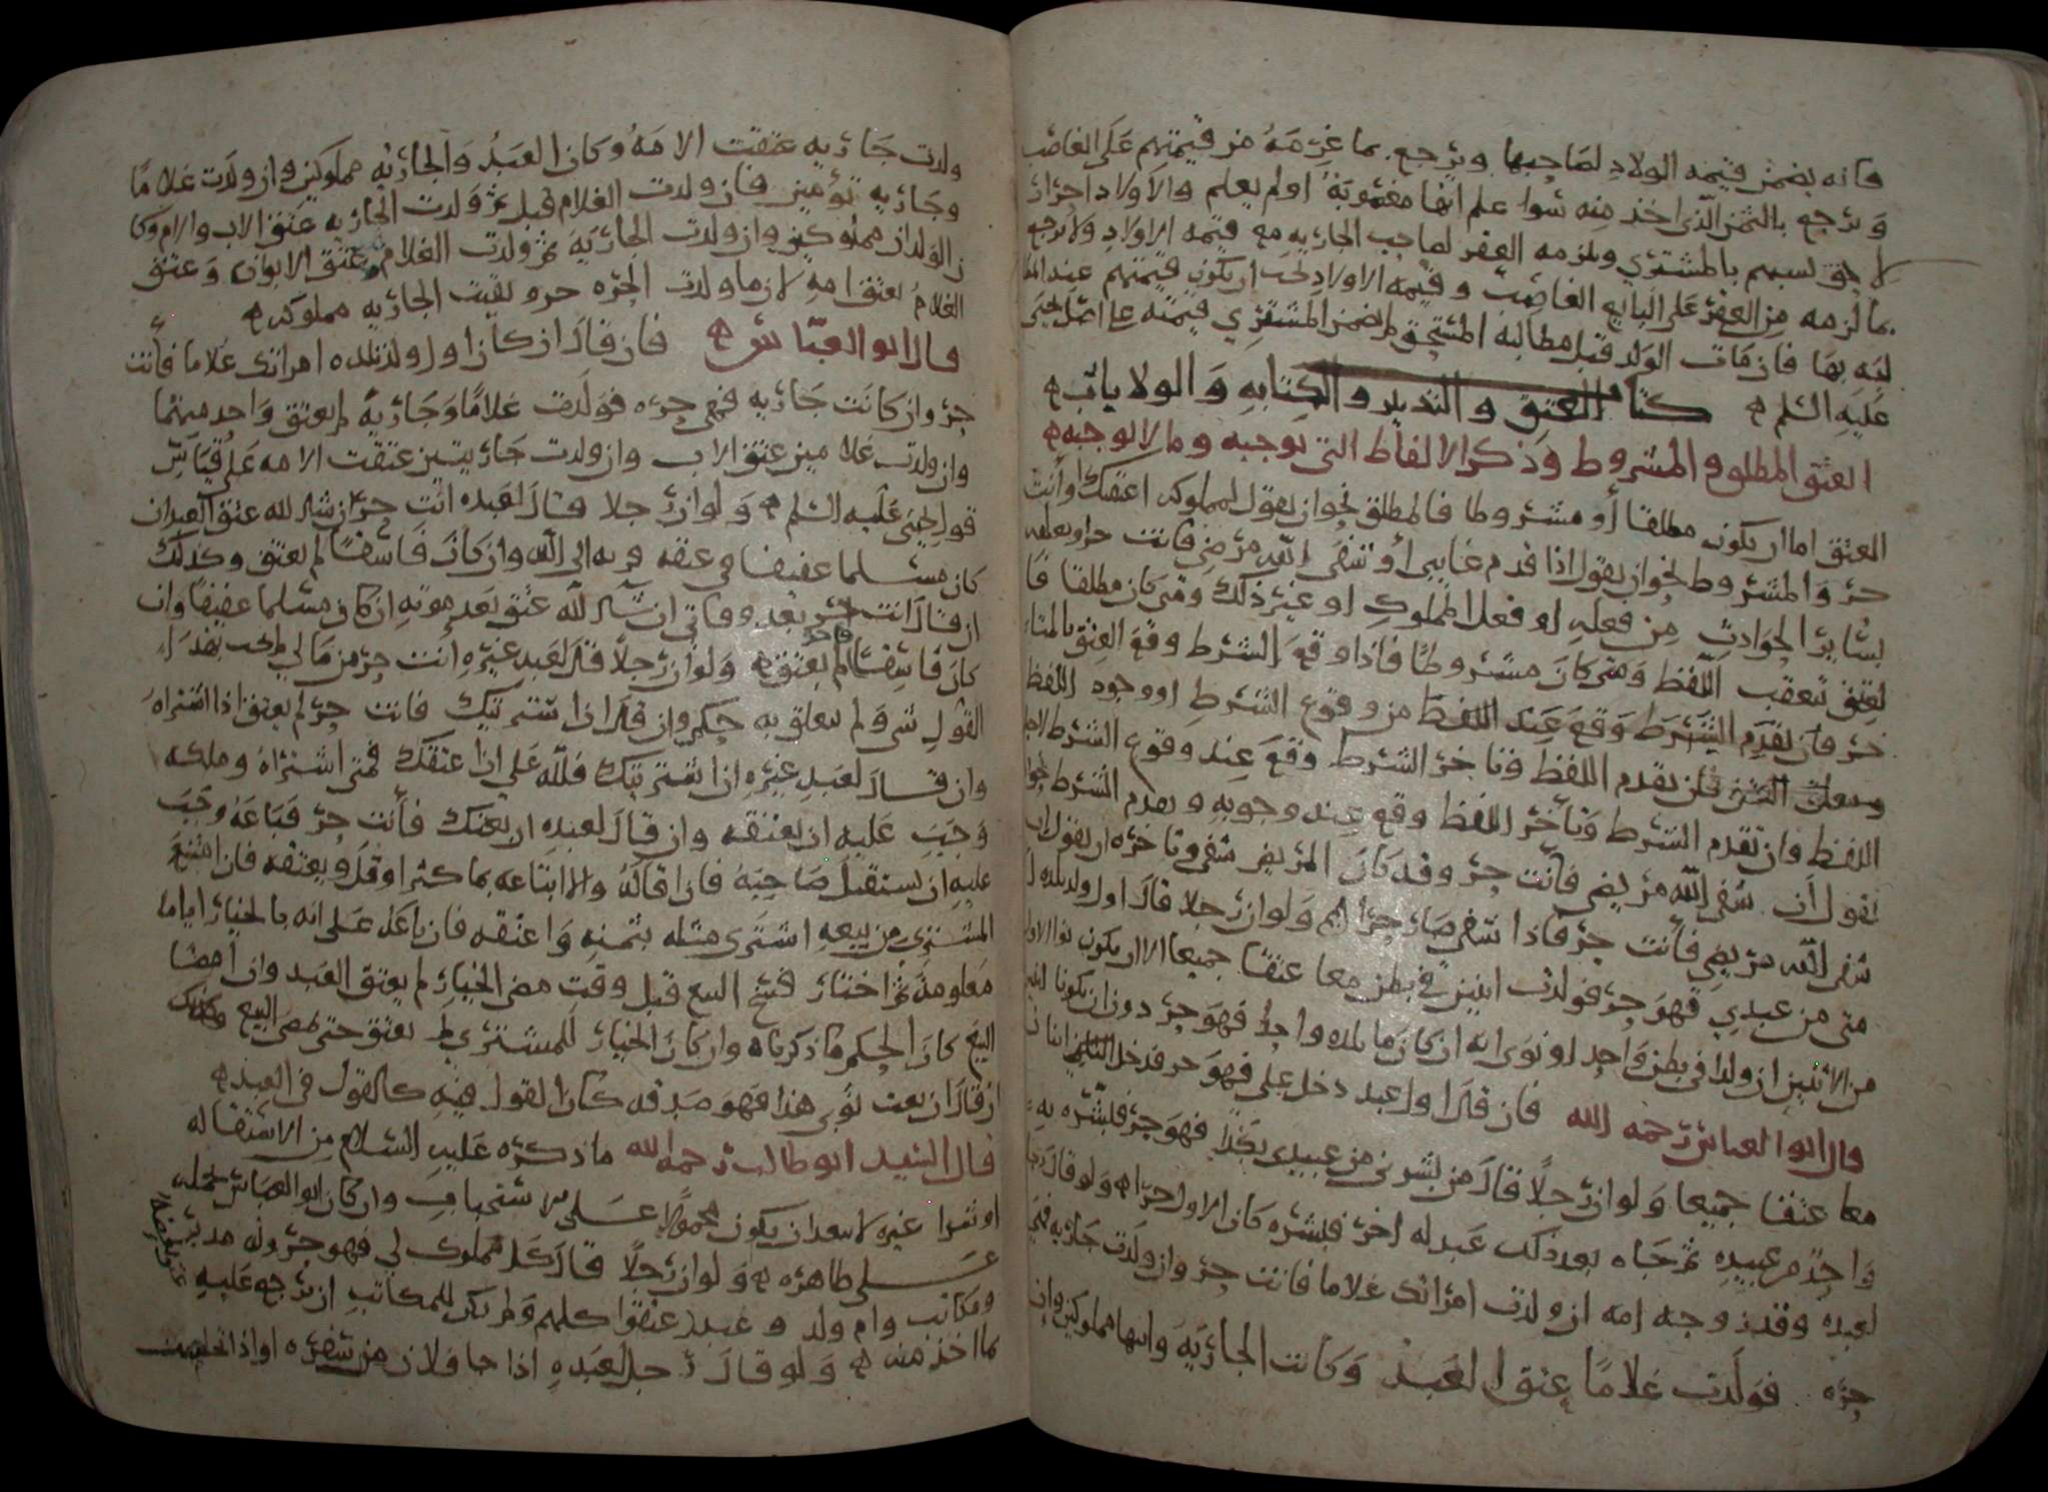 فانه يضمن قيمه الاولاد لصاحبها ويرجع بما غرمه من قيمتهم على الغاصب
ويرجع بالثمن الذي اخذ منه سوا علم انها مغصوبة او لم يعلم والاولاد احرار
لاحق نسبهم بالمشتري ويلزمه العقر لصاحب الجاريه مع قيمه الاولاد ولا يرجع
بما لزمه من العقر على البايع الغاصب وقيمه الاولاد يجب ان يكون قيمتهم عند المطا
لبه بها فان مات الولد قبل مطالبه المستحق لم يضمن المشتري قيمته على اصل يحيى
عليه السلم ه كتاب العتق والتدبير والكتابه والولا باب ه
العتق المطلق والمشروط وذكر الالفاظ التي توجبه وما لا توجبه ه
العتق اما ان يكون مطلقا أو مشروطا فالمطلق نحو ان يقول لمملوكه اعتقتك او أنت
حر والمشروط نحو ان يقول اذا قدم غايبي أو شفى الله مرضي فانت حر او يعلقه
بساير الحوادث من فعله او فعل المملوك او غير ذلك ومتى كان مطلقا فا
لعتق تعقب اللفظ ومتى كان مشروطا فاذا وقع الشرط وقع العتق بالمناد
خر فان تقدم الشرط وقع عند اللفظ من وقوع الشرط او وجود اللفظ
فان تقدم اللفظ وتاخر الشرط وقع عند وقوع الشرط لاجل
اللفظ وان تقدم الشرط وتأخر اللفظ وقع عند وجوبه وتقدم الشرط نحو ان
يقول ان شفى الله مريضي فأنت حر وقد كان المريض شفي وتاخره ان يقول ان
شفى الله مريضي فأنت حر فاذا شفي صار حرا ه ولو ان رجلا قال اول ولد تلده ا
متي من عبدي فهو حر فولدت اثنين في بطن معا عتقا جميعا الا ان يكون نوا الاول
من الاثنين ان ولدا في بطن واحد او نوى انه ان كان ما تلده واحدا فهو حر دون ان يكونا اثنين
قال ابو العباس رحمه الله فان قال اول عبد دخل علي فهو حر فدخل اثنان
معا عتقا جميعا ولو ان رجلا قال من بشرني من عبيدي بكذا فهو حر فبشره به
واحد من عبيده ثم جاه بعد ذلك عبد له اخر فبشره كان الاول حرا ه ولو قال رجل
لعبده وقد زوجه امه ان ولدت امراتك غلاما فانت حر وان ولدت جاريه فهي
حره فولدت غلاما عتق العبد وكانت الجارية وابنها مملوكين وان
ولدت جاريه عتقت الامه وكان العبد والجاريه مملوكين وان ولدت غلاما
وجاريه تؤمين فان ولدت الغلام قبل ثم ولدت الجاريه عتق الاب والام وكا
ن الولدان مملوكين وان ولدت الجارية ثم ولدت الغلام عتق الابوان وعتق
الغلام بعتق امه لان ما ولدت الحره حر وبقيت الجاريه مملوكه ه
قال ابو العباس ه فان قال ان كان اول ولد تلده امراتك غلاما فأنت
حر وان كانت جاريه فهي حره فولدت غلاما وجاريه لم يعتق واحد منهما
وان ولدت غلامين عتق الاب وان ولدت جاريتين عتقت الامه على قياس
قول يحيى عليه السلم ه ولو ان رجلا قال لعبده انت حر ان شا الله عتق العبد ان
كان مسلما عفيفا في عتقه قربه الى الله وان كان فاسقا لم يعتق وكذلك
ان قال انت حر بعد وفاتي ان شا الله عتق بعد موته ان كان مسلما عفيفا وان
كان فاسقا لم يعتق ه ولو ان رجلا قال لعبد غيره أنت حر من مالي لم يجب بهذا
القول شي ولم يتعلق به حكم وان قال اذا اشتريتك فانت حر لم يعتق اذا اشتراه
وان قال لعبد غيره ان اشتريتك فلله علي ان اعتقك فمتى اشتراه وملكه
وجب عليه ان يعتقه وان قال لعبده ان بعتك فأنت حر فباعه وجب
عليه ان يستقيل صاحبه فان اقاله والا ابتاعه بما كثر او قل ويعتقه فان امتنع
المشتري من بيعه اشترى مثله بثمنه واعتقه فان باعه على انه بالخيار اياما
معلومة ثم اختار فسخ البيع قبل وقت مضي الخيار لم يعتق العبد وان أمضا
البيع كان الحكم ما ذكرناه وان كان الخيار للمشتري لم يعتق حتى يمضي البيع وكذلك
ان قال ان بعت ثوبي هذا فهو صدقه كان القول فيه كالقول في العبد ه
قال السيد ابو طالب رحمه الله ما ذكره عليه السلام من الاستقاله
او شرا غيره لا يبعد ان يكون محمولا على الاستحباب وان كان ابو العباس حمله
على ظاهره ه ولو ان رجلا قال كل مملوك لي فهو حر وله مدبر
ومكاتب وام ولد وعبد عتقوا كلهم ولم يكن للمكاتب ان يرجع عليه
بما اخذ منه ه ولو قال رجل لعبده اذا جا فلان من سفره او اذا